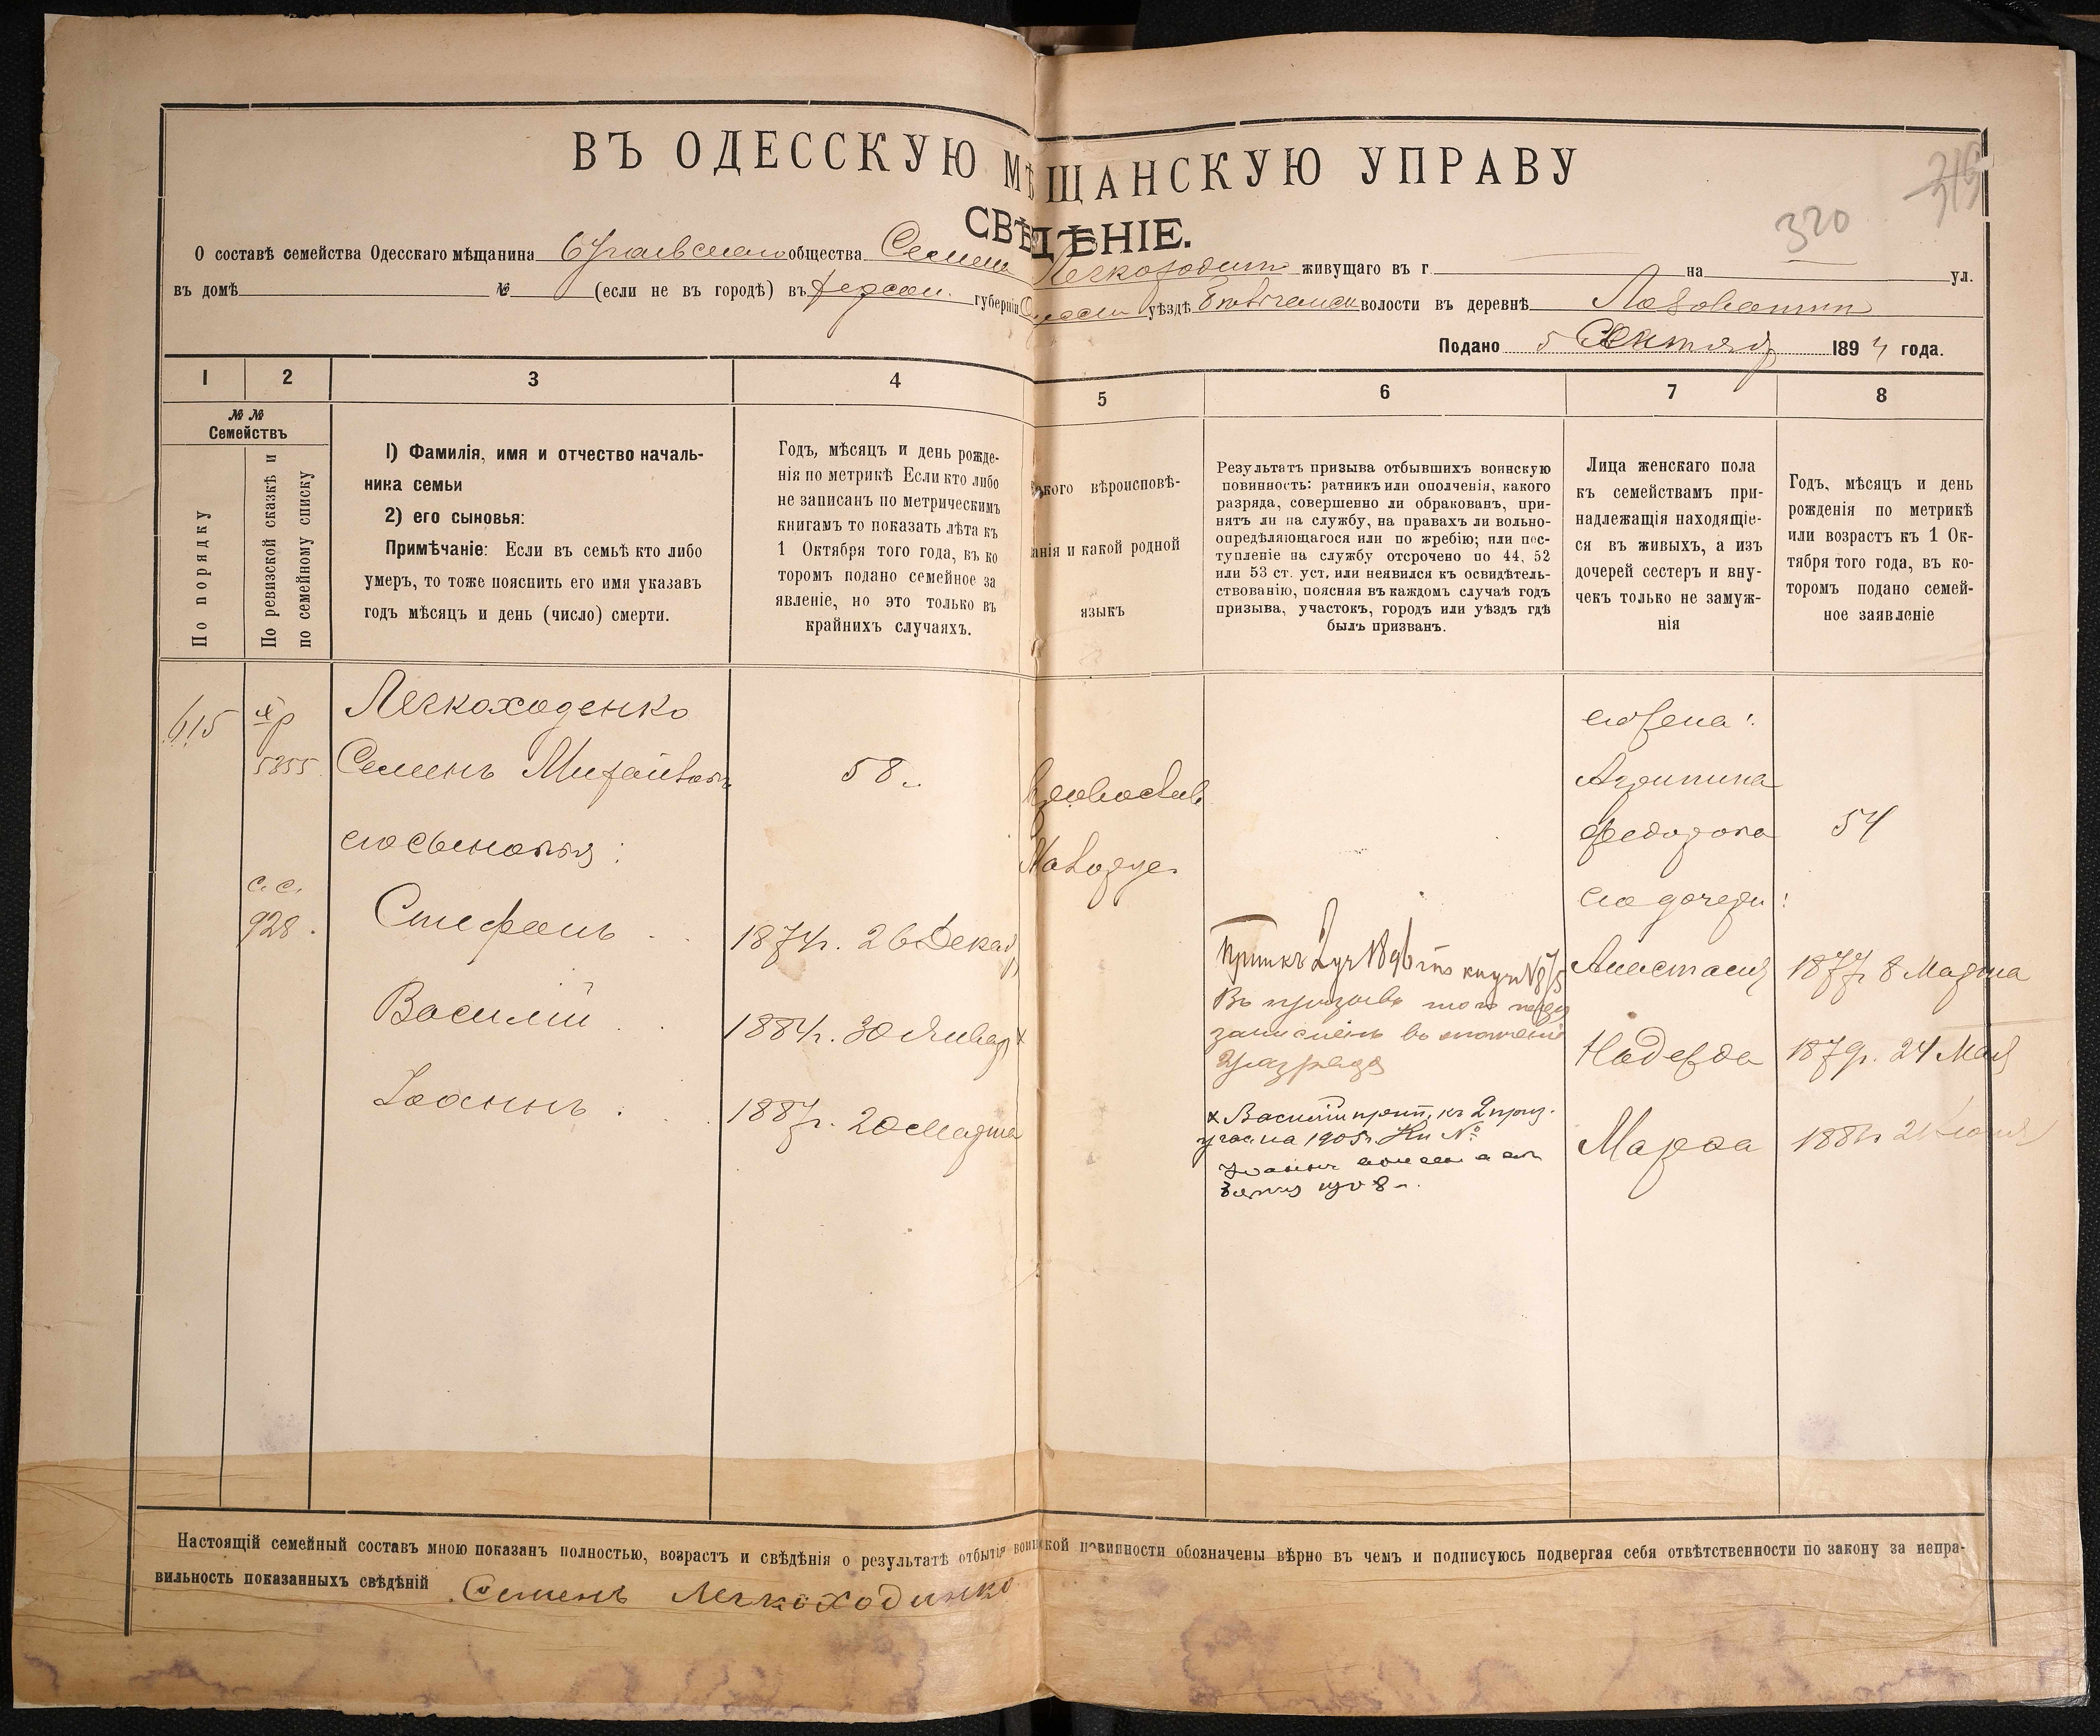 ВЪ ОДЕССКУЮ МѢЩАНСКУЮ УПРАВУ
319
320
СВѢДѢНІЕ.
О составѣ семейства Одесскаго мѣщанина общества Семена живущаго въ г. на ул.
въ домѣ № (если не въ городѣ) въ Херсон. губерніи уѣздѣ волости въ деревнѣ
Подано 5 Сентября 1894 года.
1 2 3 4 5 6 7 8
№ №
Семействъ
По порядку
По ревизской сказкѣ и
по семейному списку
1) Фамилія, имя и отчество началь-
ника семьи
2) его сыновья:
Примѣчаніе: Если въ семьѣ кто либо
умеръ, то тоже пояснить его имя указавъ
годъ мѣсяцъ и день (число) смерти.
Годъ, мѣсяцъ и день рожде-
нія по метрикѣ Если кто либо
не записанъ по метрическимъ
книгамъ то показать лѣта къ
1 Октября того года, въ ко
торомъ подано семейное за
явленіе, но это только въ
крайнихъ случаяхъ.
кого вѣроисповѣ-
анія и какой родной
языкъ
Результатъ призыва отбывшихъ воинскую
повинность: ратникъ или ополченія, какого
разряда, совершенно ли обракованъ, при-
нятъ ли на службу, на правахъ ли вольно-
опредѣляющагося или по жребію; или пос-
тупленіе на службу отсрочено по 44, 52
или 53 ст. уст. или неявился къ освидѣтель-
ствованію, поясняя въ каждомъ случаѣ годъ
призыва, участокъ, городъ или уѣздъ гдѣ
былъ призванъ.
Лица женскаго пола
къ семействамъ при-
надлежащія находящіе-
ся въ живыхъ, а изъ
дочерей сестеръ и вну-
чекъ только не замуж-
нія
Годъ, мѣсяцъ и день
рожденія по метрикѣ
или возрастъ къ 1 Ок-
тября того года, въ ко-
торомъ подано семей-
ное заявленіе
615
5355
Легкоходенко
Семенъ Михайловъ
58
Православ
его жена:
Агрипина
Федорова
54
его сыновья:
его дочери:
с. с.
928.
Стефанъ
1874г. 26 Декаб
Анастасія
1877г. 8 Марта
Василій
1884г. 30 Январ х
Въ призывъ того года
зачисленъ въ ополченіе
2 разряда
Надежда
1879г. 24 Мая
Іоаннъ
1887г. 20 Марта
х Василій прип. къ 2 приз.
уч. на 1905г. Кн №
1908
Марфа
Настоящій семейный составъ мною показанъ полностью, возрастъ и свѣдѣнія о результатѣ отбытія воинской повинности обозначены вѣрно въ чемъ и подписуюсь подвергая себя отвѣтственности по закону за непра-
вильность показанныхъ свѣдѣній Семенъ Легкоходинко